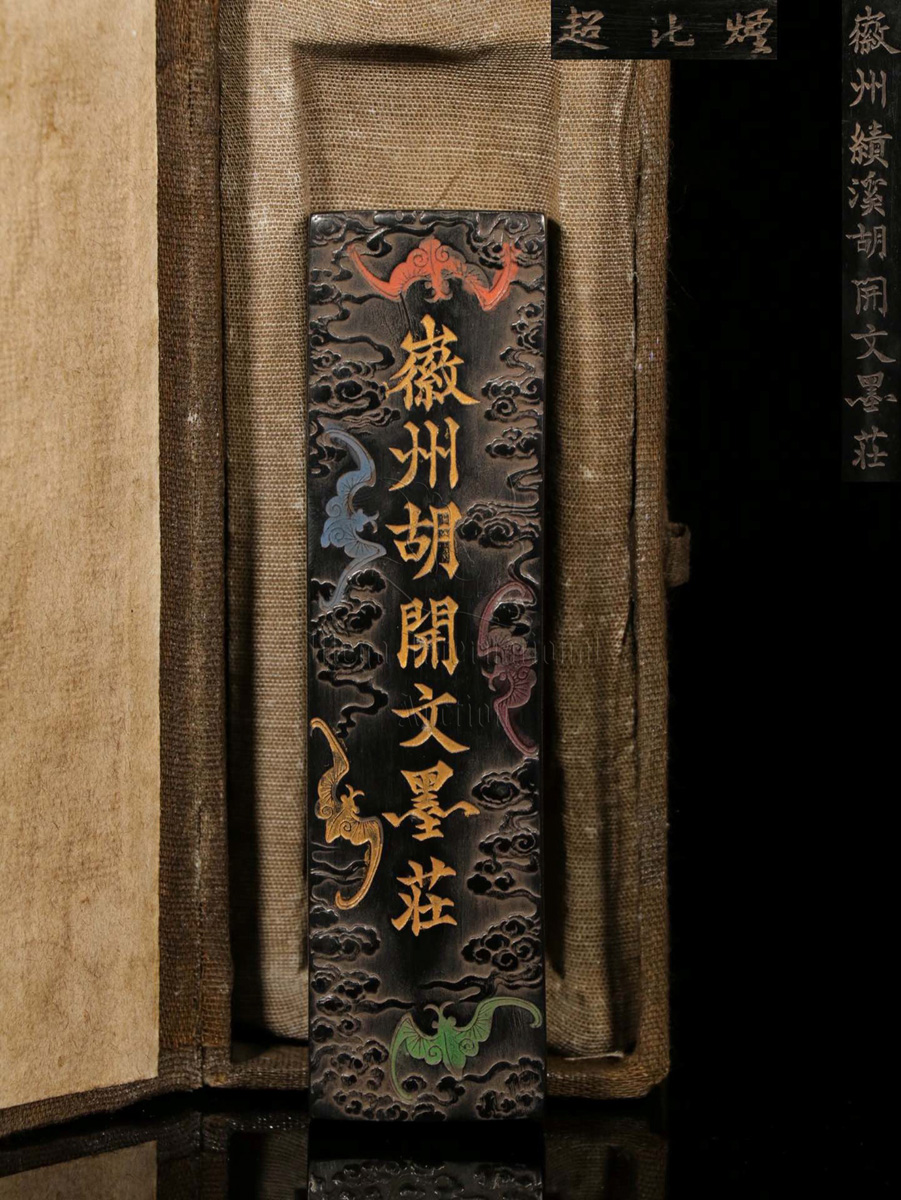 超比煙
徽州績溪胡開文墨莊
徽州胡開文墨莊